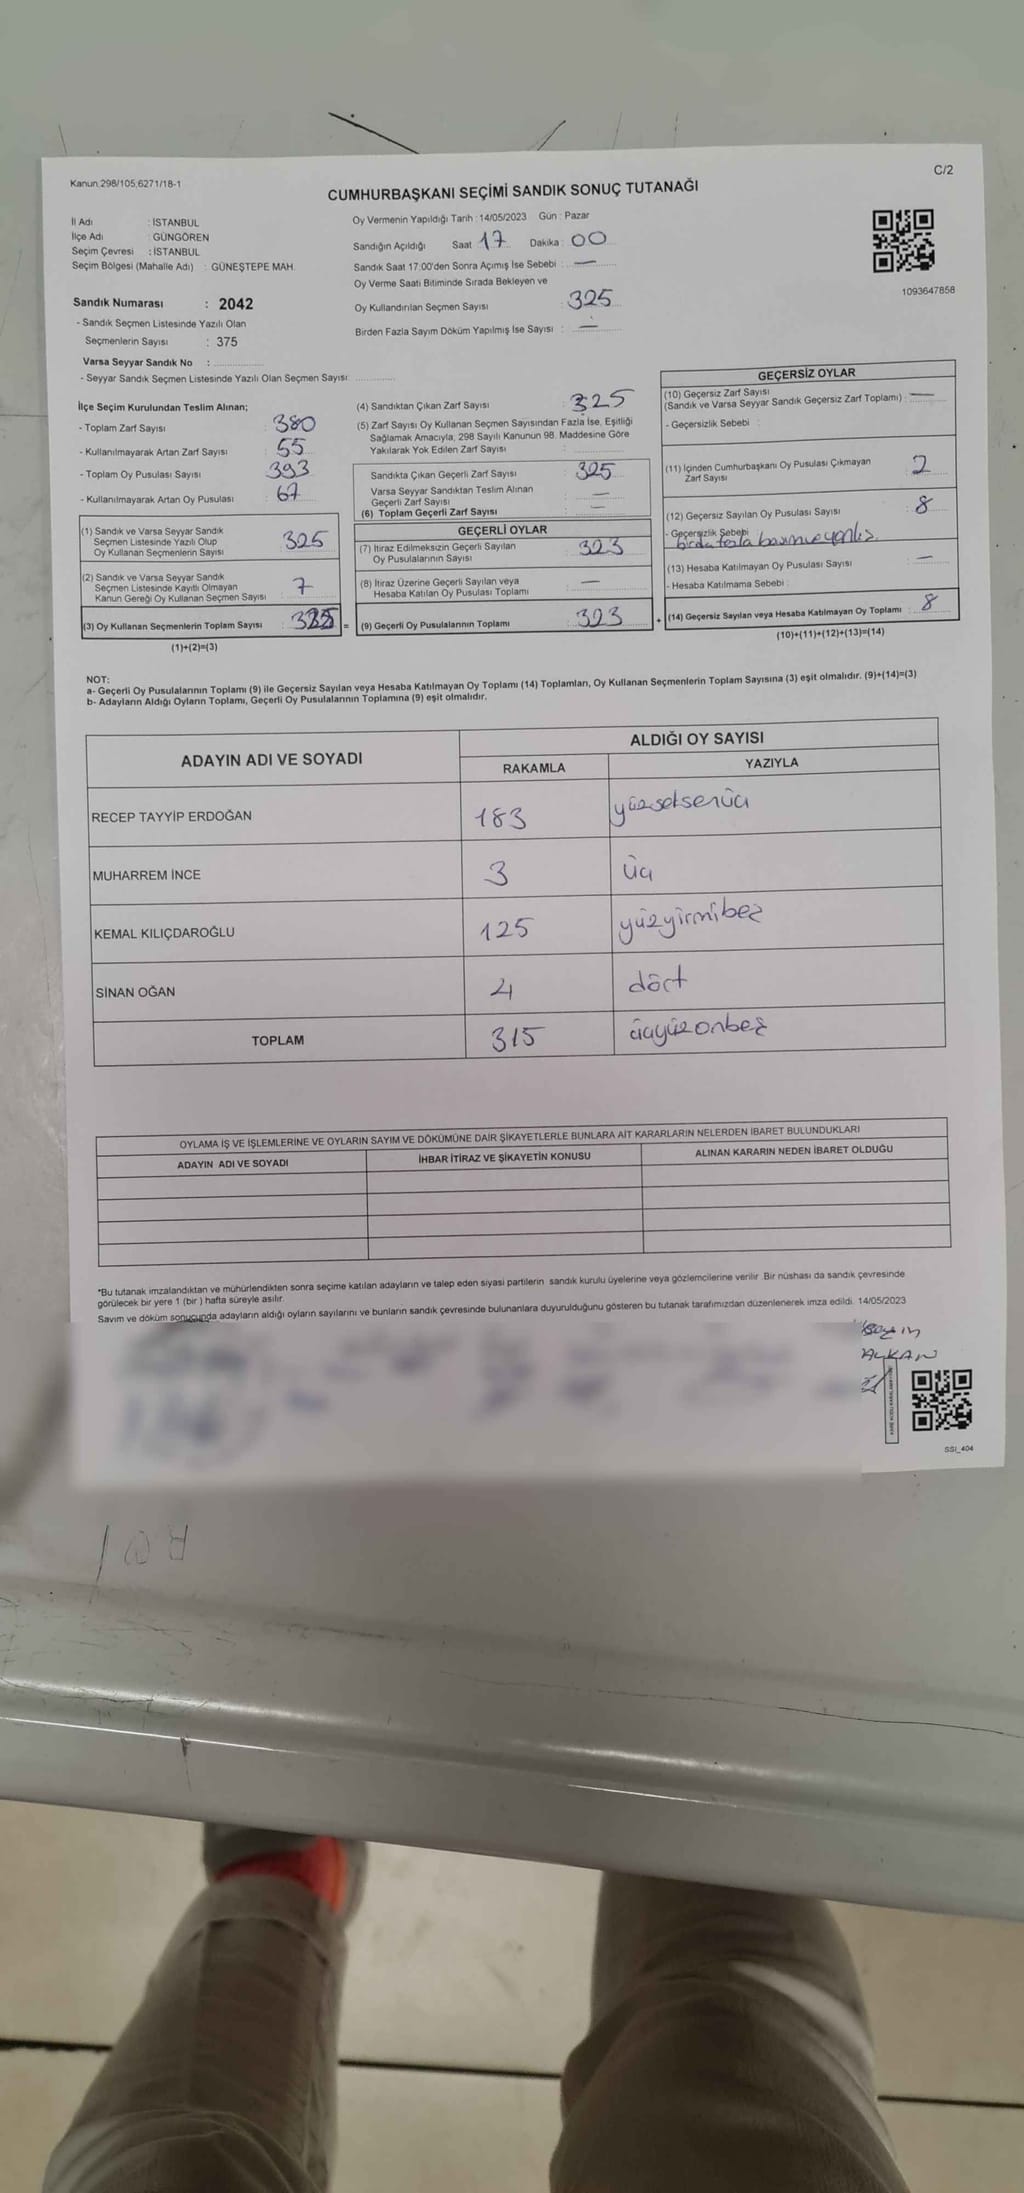 Kanun;298/105;6271/18-1
C/2
CUMHURBAŞKANI SEÇİMİ SANDIK SONUÇ TUTANAĞI
İl Adı : İSTANBUL
İlçe Adı : GÜNGÖREN
Seçim Çevresi : İSTANBUL
Seçim Bölgesi (Mahalle Adı) : GÜNEŞTEPE MAH.
Sandık Numarası : 2042
- Sandık Seçmen Listesinde Yazılı Olan
Seçmenlerin Sayısı : 375
Varsa Seyyar Sandık No :
- Seyyar Sandık Seçmen Listesinde Yazılı Olan Seçmen Sayısı:
Oy Vermenin Yapıldığı Tarih : 14/05/2023 Gün : Pazar
Sandığın Açıldığı Saat 17 Dakika : 00
Sandık Saat 17:00'den Sonra Açımış İse Sebebi : —
Oy Verme Saati Bitiminde Sırada Bekleyen ve
Oy Kullandırılan Seçmen Sayısı : 325
Birden Fazla Sayım Döküm Yapılmış İse Sayısı : —
1093647858
İlçe Seçim Kurulundan Teslim Alınan;
- Toplam Zarf Sayısı : 380
- Kullanılmayarak Artan Zarf Sayısı : 55
- Toplam Oy Pusulası Sayısı : 393
- Kullanılmayarak Artan Oy Pusulası : 67
(1) Sandık ve Varsa Seyyar Sandık
Seçmen Listesinde Yazılı Olup
Oy Kullanan Seçmenlerin Sayısı : 325
(2) Sandık ve Varsa Seyyar Sandık
Seçmen Listesinde Kayıtlı Olmayan
Kanun Gereği Oy Kullanan Seçmen Sayısı : 7
(3) Oy Kullanan Seçmenlerin Toplam Sayısı : =
(1)+(2)=(3)
(4) Sandıktan Çıkan Zarf Sayısı : 325
(5) Zarf Sayısı Oy Kullanan Seçmen Sayısından Fazla İse, Eşitliği
Sağlamak Amacıyla; 298 Sayılı Kanunun 98. Maddesine Göre
Yakılarak Yok Edilen Zarf Sayısı :
Sandıkta Çıkan Geçerli Zarf Sayısı : 325
Varsa Seyyar Sandıktan Teslim Alınan
Geçerli Zarf Sayısı : —
(6) Toplam Geçerli Zarf Sayısı : —
GEÇERLİ OYLAR
(7) İtiraz Edilmeksizin Geçerli Sayılan
Oy Pusulalarının Sayısı : 323
(8) İtiraz Üzerine Geçerli Sayılan veya
Hesaba Katılan Oy Pusulası Toplamı : —
(9) Geçerli Oy Pusulalarının Toplamı : 323 +
GEÇERSİZ OYLAR
(10) Geçersiz Zarf Sayısı
(Sandık ve Varsa Seyyar Sandık Geçersiz Zarf Toplamı) : —
- Geçersizlik Sebebi :
(11) İçinden Cumhurbaşkanı Oy Pusulası Çıkmayan
Zarf Sayısı : 2
(12) Geçersiz Sayılan Oy Pusulası Sayısı : 8
- Geçersizlik Sebebi
(13) Hesaba Katılmayan Oy Pusulası Sayısı : —
- Hesaba Katılmama Sebebi :
(14) Geçersiz Sayılan veya Hesaba Katılmayan Oy Toplamı : 8
(10)+(11)+(12)+(13)=(14)
NOT:
a- Geçerli Oy Pusulalarının Toplamı (9) ile Geçersiz Sayılan veya Hesaba Katılmayan Oy Toplamı (14) Toplamları, Oy Kullanan Seçmenlerin Toplam Sayısına (3) eşit olmalıdır. (9)+(14)=(3)
b- Adayların Aldığı Oyların Toplamı, Geçerli Oy Pusulalarının Toplamına (9) eşit olmalıdır.
ADAYIN ADI VE SOYADI
ALDIĞI OY SAYISI
RAKAMLA YAZIYLA
RECEP TAYYİP ERDOĞAN 183 yüzseksenüç
MUHARREM İNCE 3 üç
KEMAL KILIÇDAROĞLU 125 yüzyirmibeş
SİNAN OĞAN 4 dört
TOPLAM 315 üçyüzonbeş
OYLAMA İŞ VE İŞLEMLERİNE VE OYLARIN SAYIM VE DÖKÜMÜNE DAİR ŞİKAYETLERLE BUNLARA AİT KARARLARIN NELERDEN İBARET BULUNDUKLARI
ADAYIN ADI VE SOYADI İHBAR İTİRAZ VE ŞİKAYETİN KONUSU ALINAN KARARIN NEDEN İBARET OLDUĞU
*Bu tutanak imzalandıktan ve mühürlendikten sonra seçime katılan adayların ve talep eden siyasi partilerin sandık kurulu üyelerine veya gözlemcilerine verilir. Bir nüshası da sandık çevresinde
görülecek bir yere 1 (bir ) hafta süreyle asılır.
Sayım ve döküm sonucunda adayların aldığı oyların sayılarını ve bunların sandık çevresinde bulunanlara duyurulduğunu gösteren bu tutanak tarafımızdan düzenlenerek imza edildi. 14/05/2023
ALKAN
SSI_404